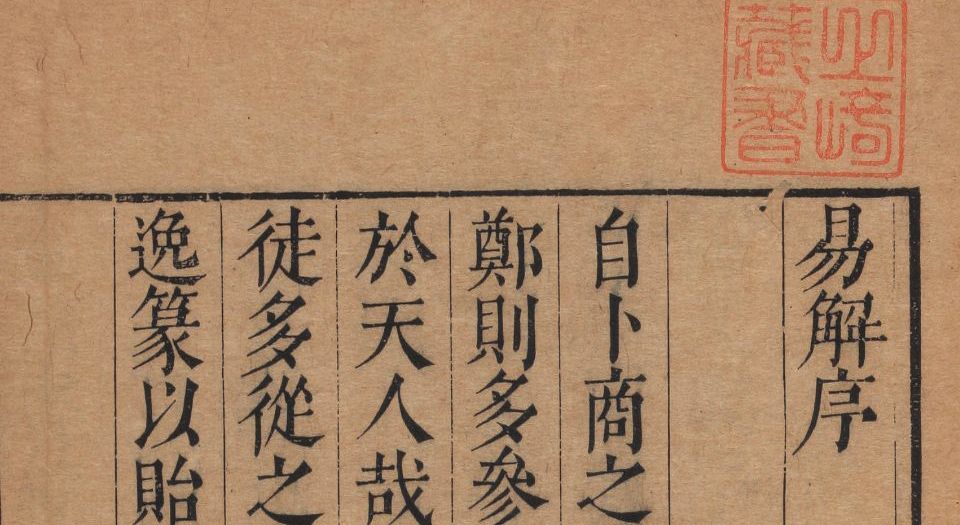 之崎
藏書
易解序
自卜商之
鄭則多參
於天人哉
徒多從之
逸篆以貽